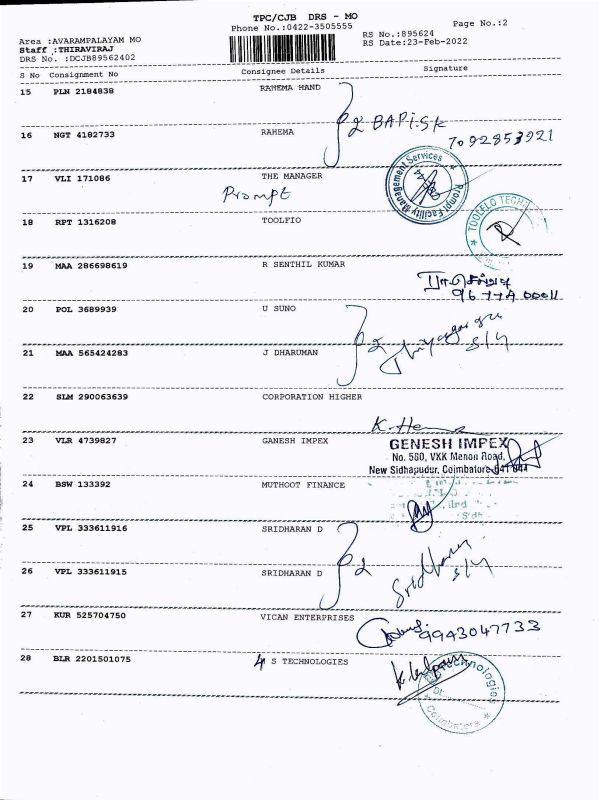 TPC/CJB DRS - MO
Phone No.:0422-3505555
Page No.:2
Area :AVARAMPALAYAM MO
Staff :THIRAVIRAJ
DRS No. :DCJB89562402
RS No.:895624
RS Date:23-Feb-2022
S No Consignment No Consignee Details Signature
15 PLN 2184838 RAHEMA HAND
2 BAPi.sk
16 NGT 4182733 RAHEMA
7092853921
17 VLI 171086 THE MANAGER
Prompt
Prompt Facility Management Services
18 RPT 1316208 TOOLFIO
19 MAA 286698619 R SENTHIL KUMAR
20 POL 3689939 U SUNO
2
21 MAA 565424283 J DHARUMAN
22 SLM 290063639 CORPORATION HIGHER
K. Hem
23 VLR 4739827 GANESH IMPEX
GENESH IMPEX
No. 580, VKK Menon Road,
New Sidhapudur, Coimbatore-641 044
24 BSW 133392 MUTHOOT FINANCE
25 VPL 333611916 SRIDHARAN D
2
Sridharan
26 VPL 333611915 SRIDHARAN D
27 KUR 525704750 VICAN ENTERPRISES
9943047733
28 BLR 2201501075 4 S TECHNOLOGIES
Technologies
Coimbatore